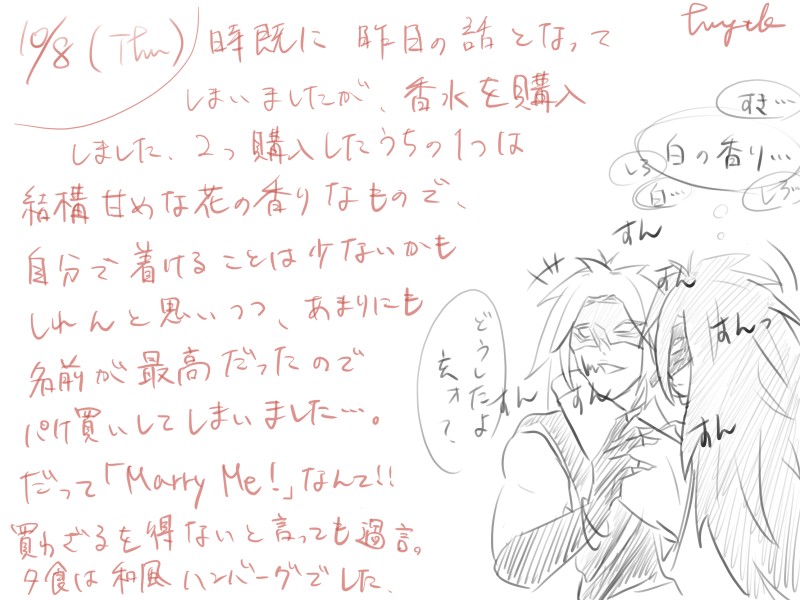 10/8 (Thu) 時既に 昨日の話となって
しまいましたが、香水を購入
しました、2つ購入したうちの1つは
結構甘めな花の香りなもので、
自分で着けることは少ないかも
しれんと思いつつ、あまりにも
名前が最高だったので
パケ買いしてしまいました…。
だって「Marry Me!」なんて!!
買わざるを得ないと言っても過言。
夕食は和風ハンバーグでした、
すき…
白の香り…
しろ
白…
しろ…
すん
すん
すんっ
どうしたよ
玄オ?、
すん
すん
すん